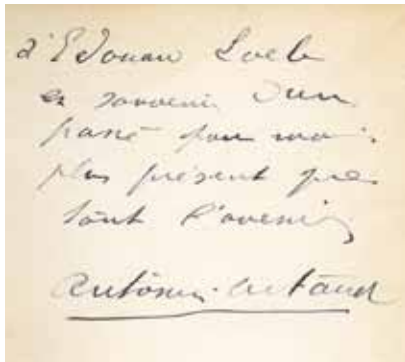 à Edouard Loeb
en souvenir d'un
passé pour moi
plus présent que
tout l'avenir,
Antonin Artaud